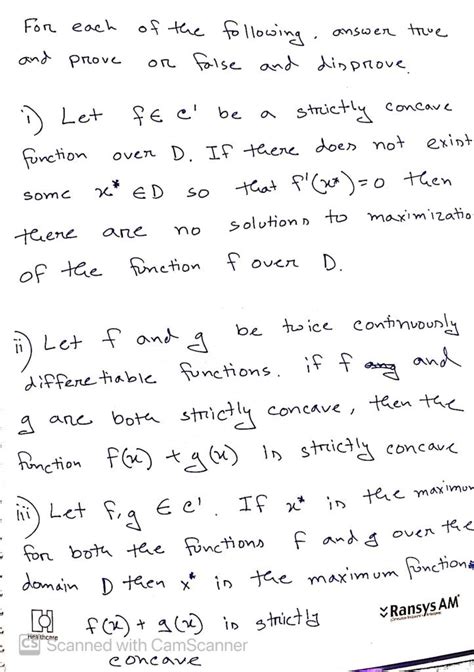 For each of the following, answer true
and prove or false and disprove.
i) Let f ∈ C' be a strictly concave
function over D. If there does not exist
some x* ∈ D so that f'(x*) = 0 then
there are no solutions to maximizatio
of the function f over D.
ii) Let f and g be twice continuously
differetiable functions. if f and
g are both strictly concave, then the
function f(x) + g(x) is strictly concave
iii) Let f, g ∈ C'. If x* is the maximum
for both the functions f and g over the
domain D then x* is the maximum function
f(x) + g(x) is strictly
concave
Healthcare
RansysAM
CS Scanned with CamScanner